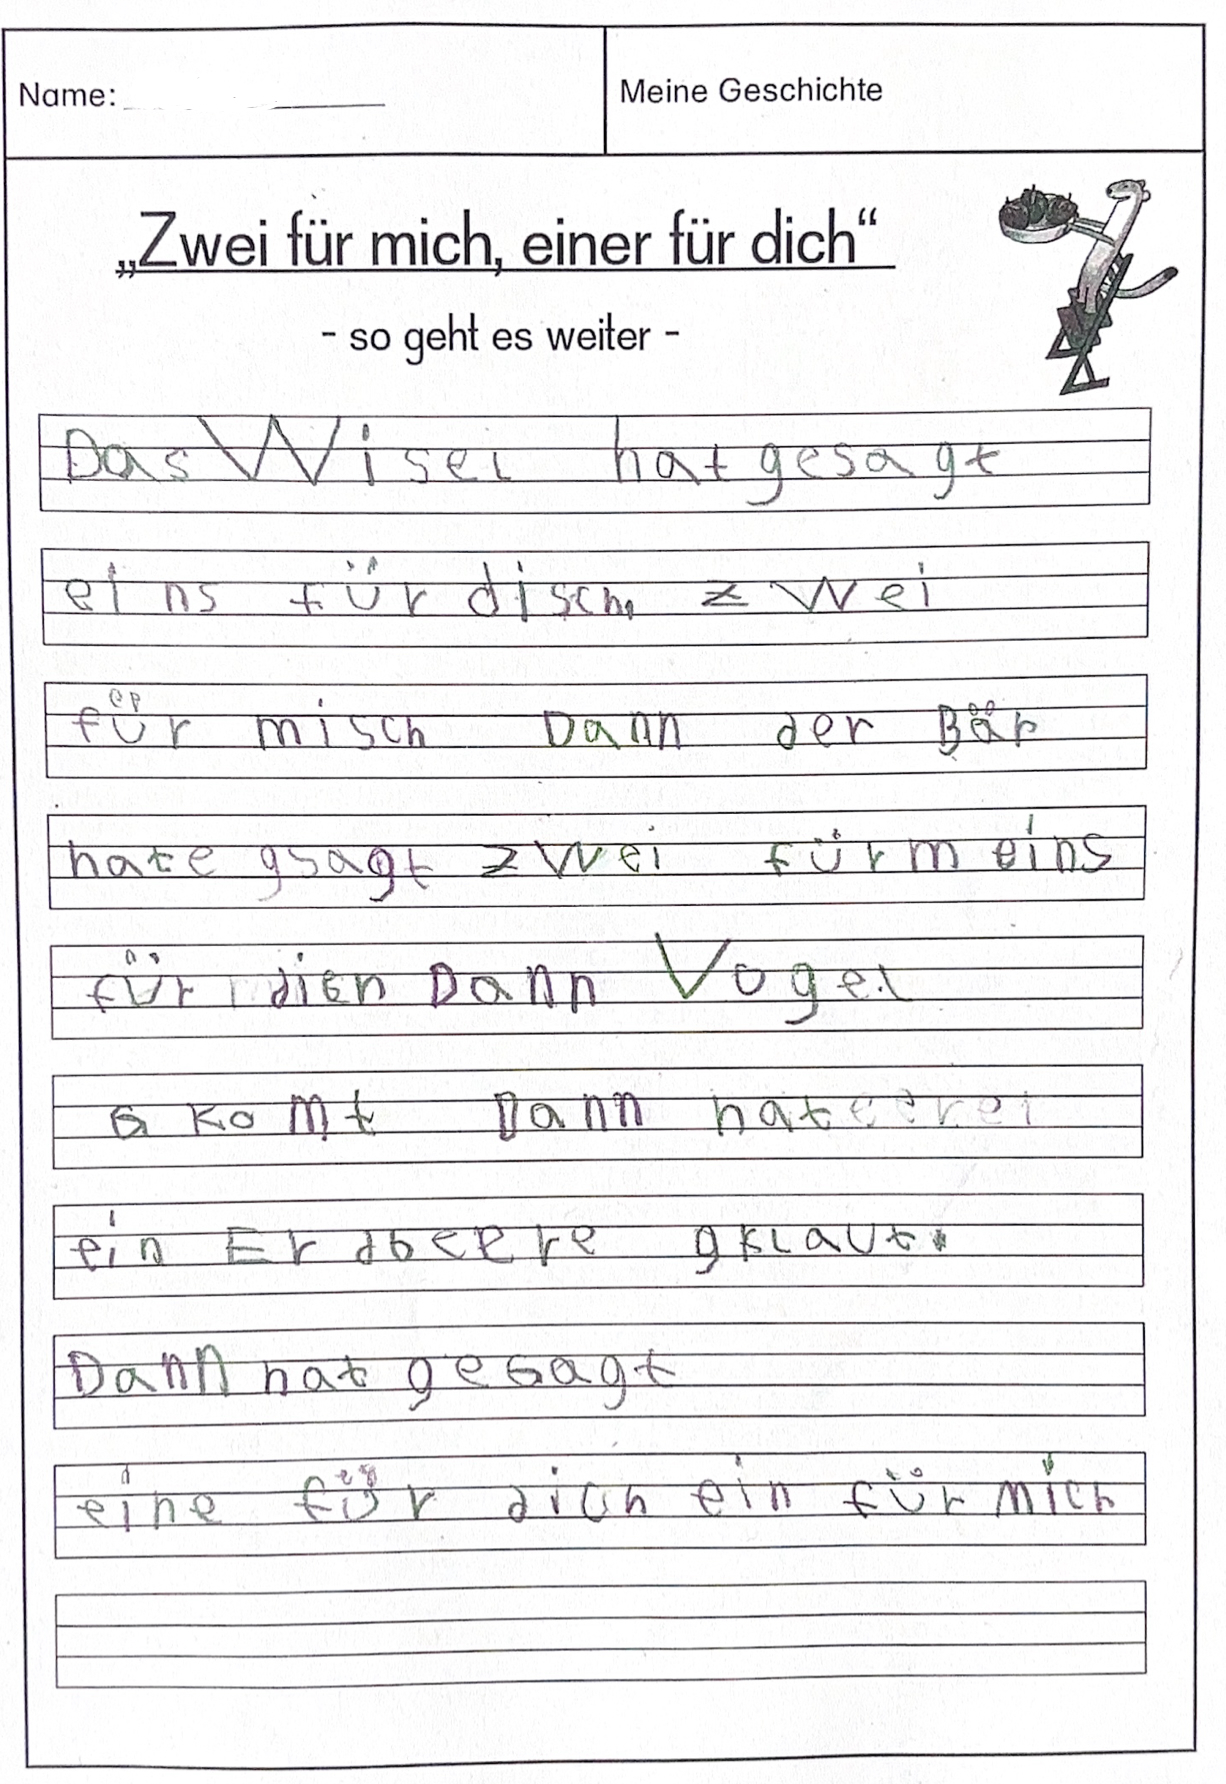 Name:
Meine Geschichte
„Zwei für mich, einer für dich“
- so geht es weiter -
Das Wisel hat gesagt
eins für disch zwei
für misch Dann der Bär
hate gsagt zwei für m eins
für dien Dann Vogel
komt Dann hat
ein Erdbeere gklaut.
Dann hat gesagt
eine für dich ein für mich